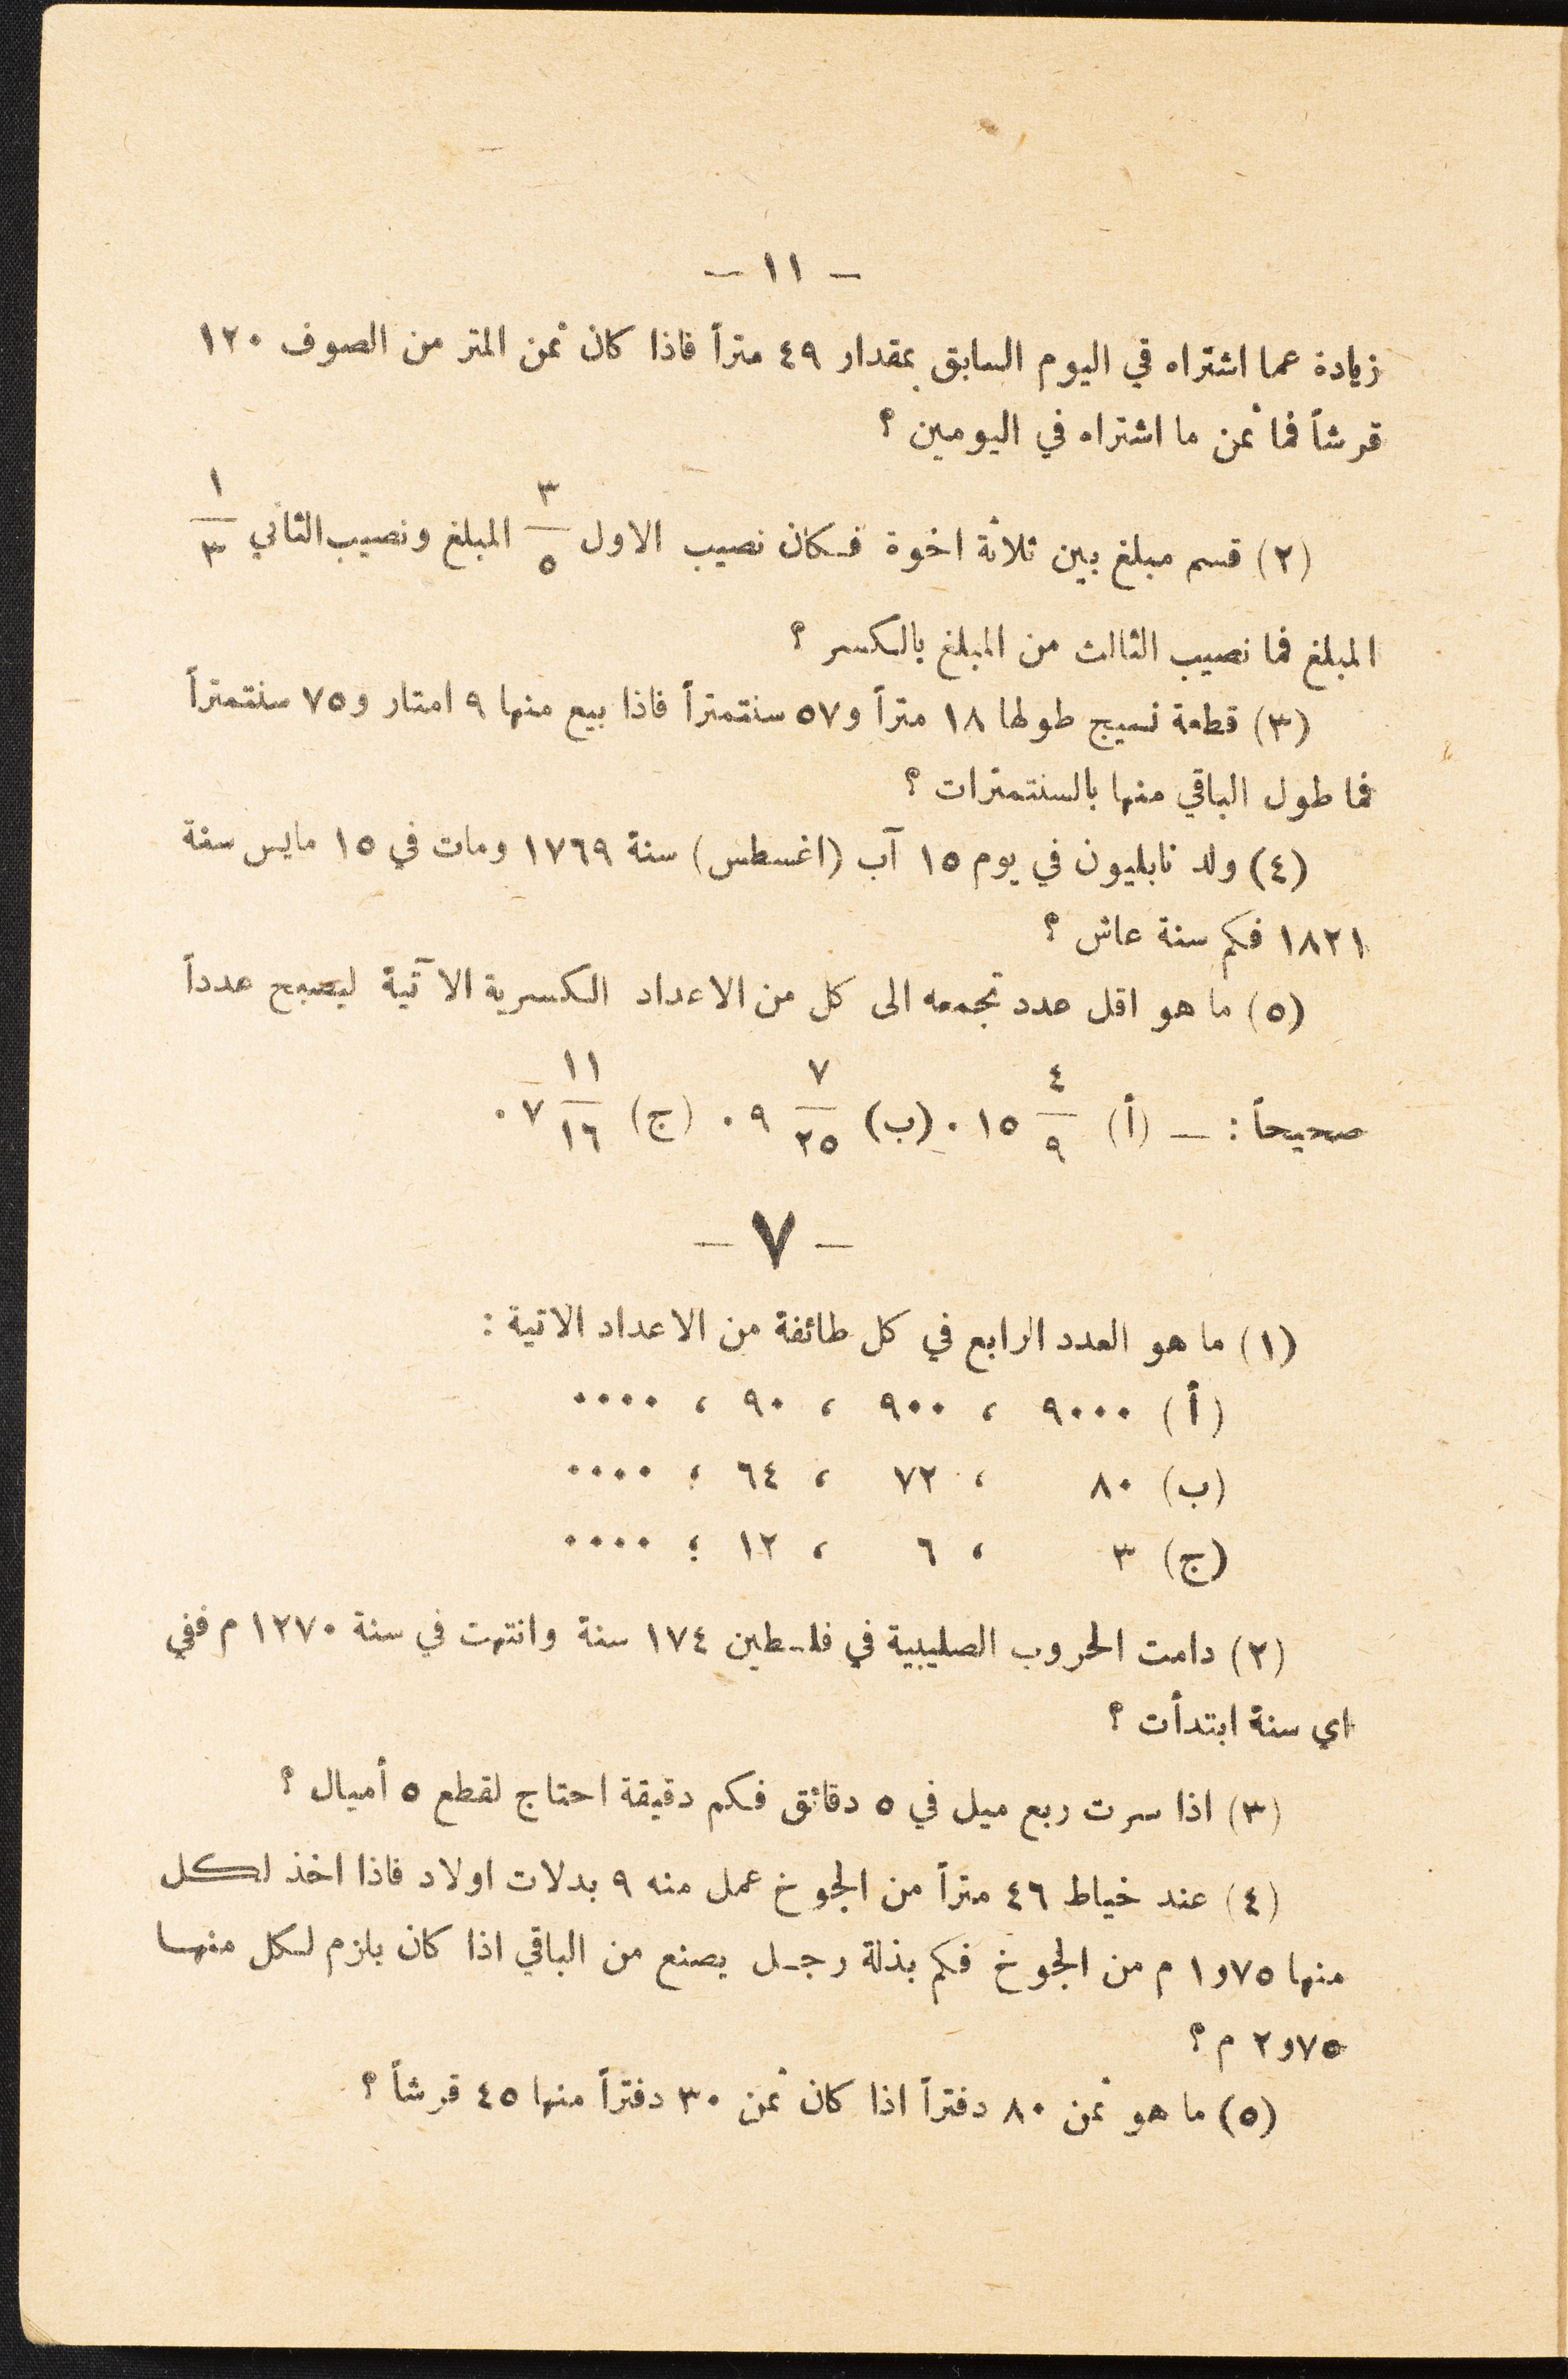 — ١١ —
زيادة عما اشتراه في اليوم السابق بمقدار ٤٩ متراً فاذا كان ثمن المتر من الصوف ١٢٠
قرشاً فما ثمن ما اشتراه في اليومين ؟
(٢) قسم مبلغ بين ثلاثة اخوة فكان نصيب الاول ٣/٥ المبلغ ونصيب الثاني ١/٣
المبلغ فما نصيب الثالث من المبلغ بالكسر ؟
(٣) قطعة نسيج طولها ١٨ متراً و٥٧ سنتمتراً فاذا بيع منها ٩ امتار و٧٥ سنتمتراً
فما طول الباقي منها بالسنتمترات ؟
(٤) ولد نابليون في يوم ١٥ آب (اغسطس) سنة ١٧٦٩ ومات في ١٥ مايس سنة
١٨٢١ فكم سنة عاش ؟
(٥) ما هو اقل عدد تجمعه الى كل من الاعداد الكسرية الآتية ليصبح عدداً
صحيحاً : — (أ) ٤/٩ ١٥ . (ب) ٧/٢٥ ٩ . (ج) ١١/١٦ ٧ .
— ٧ —
(١) ما هو العدد الرابع في كل طائفة من الاعداد الاتية :
(أ) ٩٠٠٠ ، ٩٠٠ ، ٩٠ ، ....
(ب) ٨٠ ، ٧٢ ، ٦٤ ؛ ....
(ج) ٣ ، ٦ ، ١٢ ؛ ....
(٢) دامت الحروب الصليبية في فلسطين ١٧٤ سنة وانتهت في سنة ١٢٧٠ م ففي
اي سنة ابتدأت ؟
(٣) اذا سرت ربع ميل في ٥ دقائق فكم دقيقة احتاج لقطع ٥ أميال ؟
(٤) عند خياط ٤٦ متراً من الجوخ عمل منه ٩ بدلات اولاد فاذا اخذ لكل
منها ٧٥و١ م من الجوخ فكم بذلة رجل يصنع من الباقي اذا كان يلزم لكل منها
٧٥و٢ م ؟
(٥) ما هو ثمن ٨٠ دفتراً اذا كان ثمن ٣٠ دفتراً منها ٤٥ قرشاً ؟